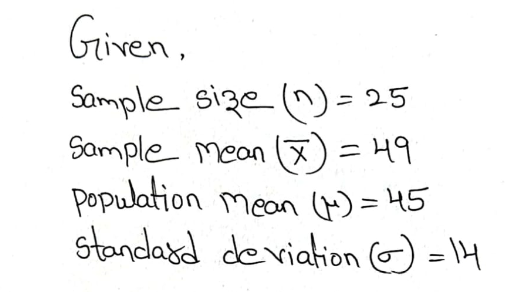 Given,
Sample size (n) = 25
Sample mean (x̅) = 49
population mean (μ) = 45
standard deviation (σ) = 14